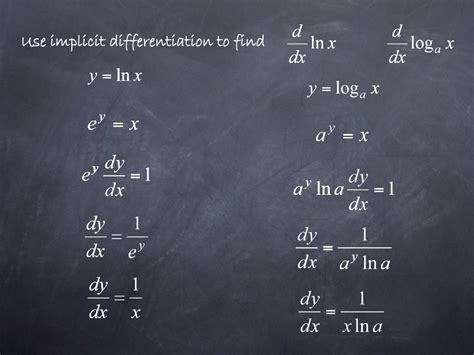 Use implicit differentiation to find d/dx ln x d/dx log_a x
y = ln x
e^y = x
e^y dy/dx = 1
dy/dx = 1/e^y
dy/dx = 1/x
y = log_a x
a^y = x
a^y ln a dy/dx = 1
dy/dx = 1/(a^y ln a)
dy/dx = 1/(x ln a)